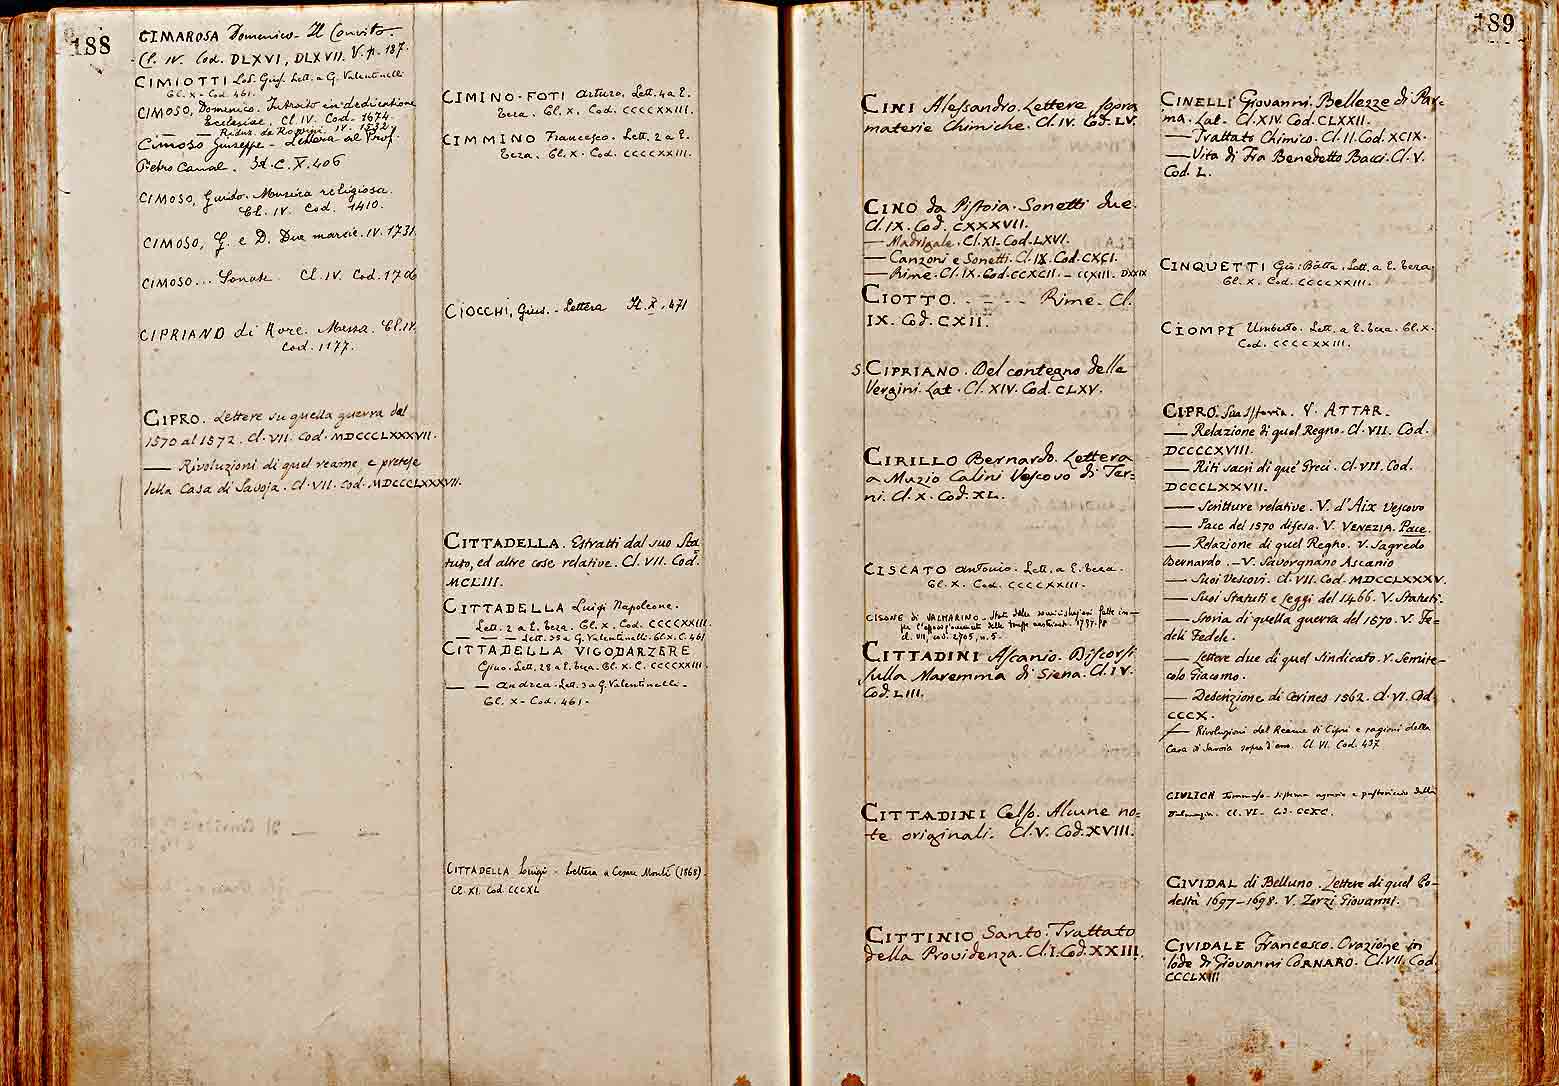 188
CIMAROSA Domenico - Il Convito.
Cl. IV. Cod. DLXVI, DLXVII. V. p. 187.
CIMIOTTI Lod. Gius. Lett. a G. Valentinelli
Cl. X - Cod. 461.
CIMOSO, Domenico. Introito in dedicatione
Ecclesiae. Cl. IV. Cod. 1674.
— — Riduz. da Rossini. IV. 1532
Cimoso Giuseppe - Lettera al Prof.
Pietro Canal. It. C. X. 406
CIMOSO, Guido. Musica religiosa.
Cl. IV. Cod. 1410.
CIMOSO, G. e D. Due marcie. IV. 1731.
CIMOSO... Sonate Cl. IV. Cod. 1706
CIPRIANO di Rore. Messa. Cl. IV.
Cod. 1177.
CIPRO. Lettere su quella guerra dal
1570 al 1572. Cl. VII. Cod. MDCCCLXXXVII.
— Rivoluzioni di quel reame, e pretese
della Casa di Savoja. Cl. VII. Cod. MDCCCLXXXVII.
CIMINO-FOTI Arturo, Lett. 4 a E.
Teza. Cl. X. Cod. CCCCXXIII.
CIMMINO Francesco. Lett. 2 a E.
Teza. Cl. X. Cod. CCCCXXIII.
CIOCCHI, Gius. - Lettera It. X. 471
CITTADELLA. Estratti dal suo Sta
tuto, ed altre cose relative. Cl. VII. Cod.
MCLIII.
CITTADELLA Luigi Napoleone.
Lett. 2 a E. Teza. Cl. X. Cod. CCCCXXIII.
— — — Lett. 35 a G. Valentinelli. Cl. X. C. 461
CITTADELLA VIGODARZERE
Gino. Lett. 28 a E. Teza. Cl. X. C. CCCCXXIII.
— — Andrea. Lett. 3 a G. Valentinelli -
Cl. X - Cod. 461 -
CITTADELLA Luigi - Lettera a Cesare Monti (1868)
Cl. XI. Cod CCCXL
189
CINI Alessandro. Lettere sopra
materie Chimiche. Cl. IV. Cod. LV.
CINO da Pistoia. Sonetti due.
Cl. IX. Cod. CXXXVII.
— Madrigale. Cl. XI. Cod. LXVI.
— Canzoni e Sonetti. Cl. IX. Cod. CXCI.
— Rime. Cl. IX. Cod. CCXCII. - CCXIII. DXXIX
CIOTTO. - - - Rime. Cl.
IX. Cod. CXII.
S. CIPRIANO. Del contegno delle
Vergini. Lat. Cl. XIV. Cod. CLXV.
CIRILLO Bernardo. Lettera
a Muzio Calini Vescovo di Ter=
ni. Cl. X. Cod. XL.
CISCATO Antonio. Lett. a E. Teza.
Cl. X. Cod. CCCCXXIII.
CISONE di VALMARINO - Stato delle somministrazioni fatte in
cl. VII, cod. 2705, n. 5.
CITTADINI Ascanio. Discorsi
sulla Maremma di Siena. Cl. IV.
Cod. LIII.
CITTADINI Celso. Alcune no=
te originali. Cl. V. Cod. XVIII.
CITTINIO Santo. Trattato
della Providenza. Cl. I. Cod. XXIII.
CINELLI Giovanni. Bellezze di Par=
ma. Lat. Cl. XIV. Cod. CLXXII.
— Trattato Chimico. Cl. II. Cod. XCIX.
— Vita di Fra Benedetto Bacci. Cl. V.
Cod. L.
CINQUETTI Gio: Batta. Lett. a E. Teza.
Cl. X. Cod. CCCCXXIII.
CIOMPI Umberto. Lett. a E. Teza. Cl. X.
Cod. CCCCXXIII.
CIPRO. Sua Storia. V. ATTAR.
— Relazione di quel Regno. Cl. VII. Cod.
DCCCCXVIII.
— Riti sacri di que' Greci. Cl. VII. Cod.
DCCCLXXVII.
— Scritture relative. V. d'Aix Vescovo
— Pace del 1570 difesa. V. VENEZIA. Pace.
— Relazione di quel Regno. V. Sagredo
Bernardo. - V. Savorgnano Ascanio
— Suoi Vescovi. Cl. VII. Cod. MDCCLXXXV.
— Suoi Statuti e leggi del 1466. V. Statuti.
— Storia di quella guerra del 1570. V. Fe=
deli Fedele.
— Lettere due di quel Sindicato. V. Semite=
colo Giacomo.
— Descrizione di Cerines 1562. Cl. VI. Cod.
CCCX.
— Rivoluzioni del Reame di Cipri e ragioni della
Casa di Savoia sopra d'esso. Cl. VI. Cod. 437
CIULICH Tommaso - Sistema agrario e pastoriccio della
Dalmazia. Cl. VI - Cod. CCXC.
CIVIDAL di Belluno. Lettere di quel Po-
destà 1697-1698. V. Zorzi Giovanni.
CIVIDALE Francesco. Orazione in
lode di Giovanni CORNARO. Cl. VII. Cod.
CCCLXIII